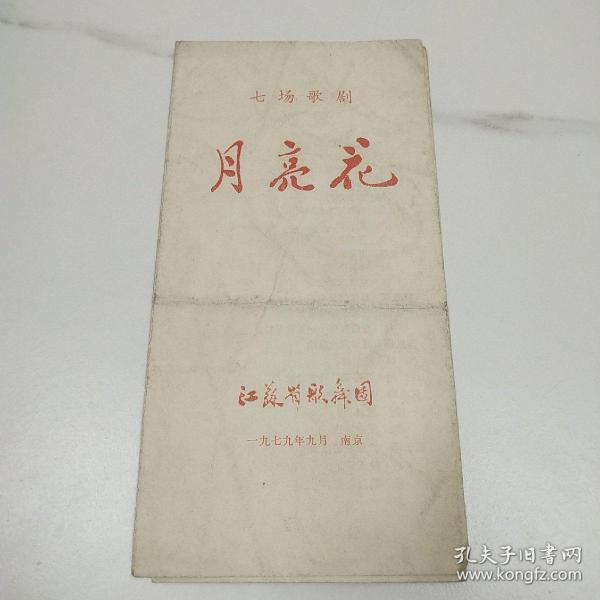 七场歌剧
月亮花
江苏省歌舞团
一九七九年九月 南京
孔夫子旧书网
www.kongfz.com